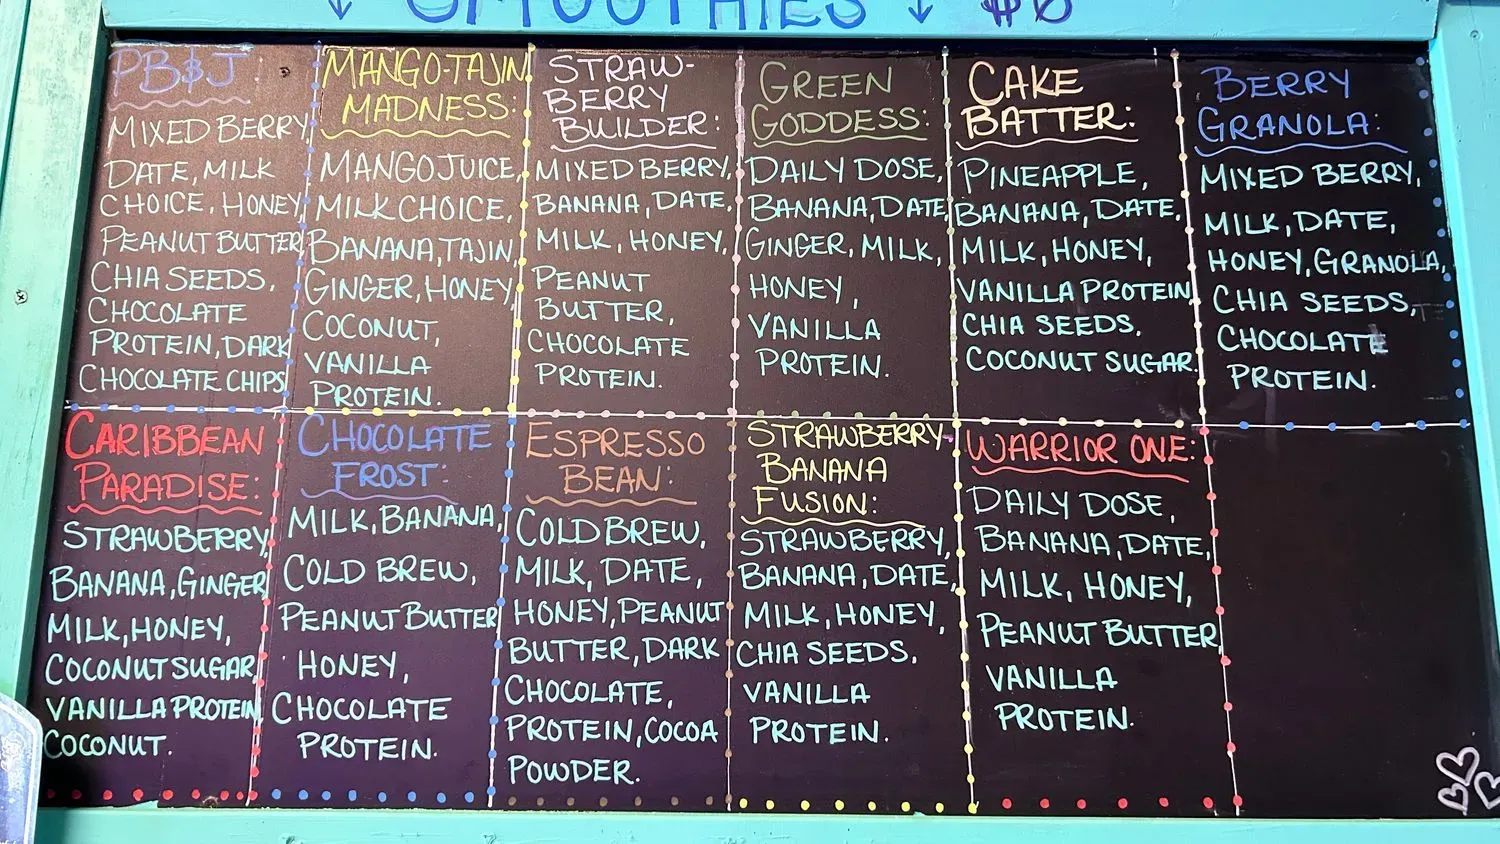 ↓ SMOOTHIES ↓ $8
PB&J
MIXED BERRY
DATE, MILK
CHOICE, HONEY
PEANUT BUTTER
CHIA SEEDS,
CHOCOLATE
PROTEIN, DARK
CHOCOLATE CHIPS
MANGO-TAJIN
MADNESS:
MANGO JUICE,
MILK CHOICE,
BANANA, TAJIN,
GINGER, HONEY,
COCONUT,
VANILLA
PROTEIN.
STRAW-
BERRY
BUILDER:
MIXED BERRY,
BANANA, DATE,
MILK, HONEY,
PEANUT
BUTTER,
CHOCOLATE
PROTEIN.
GREEN
GODDESS:
DAILY DOSE,
BANANA, DATE,
GINGER, MILK,
HONEY,
VANILLA
PROTEIN.
CAKE
BATTER:
PINEAPPLE,
BANANA, DATE,
MILK, HONEY,
VANILLA PROTEIN
CHIA SEEDS,
COCONUT SUGAR.
BERRY
GRANOLA:
MIXED BERRY,
MILK, DATE,
HONEY, GRANOLA,
CHIA SEEDS,
CHOCOLATE
PROTEIN.
CARIBBEAN
PARADISE:
STRAWBERRY,
BANANA, GINGER
MILK, HONEY,
COCONUT SUGAR,
VANILLA PROTEIN,
COCONUT.
CHOCOLATE
FROST:
MILK, BANANA,
COLD BREW,
PEANUT BUTTER
HONEY,
CHOCOLATE
PROTEIN.
ESPRESSO
BEAN:
COLD BREW,
MILK, DATE,
HONEY, PEANUT
BUTTER, DARK
CHOCOLATE,
PROTEIN, COCOA
POWDER.
STRAWBERRY-
BANANA
FUSION:
STRAWBERRY,
BANANA, DATE,
MILK, HONEY,
CHIA SEEDS,
VANILLA
PROTEIN.
WARRIOR ONE:
DAILY DOSE,
BANANA, DATE,
MILK, HONEY,
PEANUT BUTTER,
VANILLA
PROTEIN.